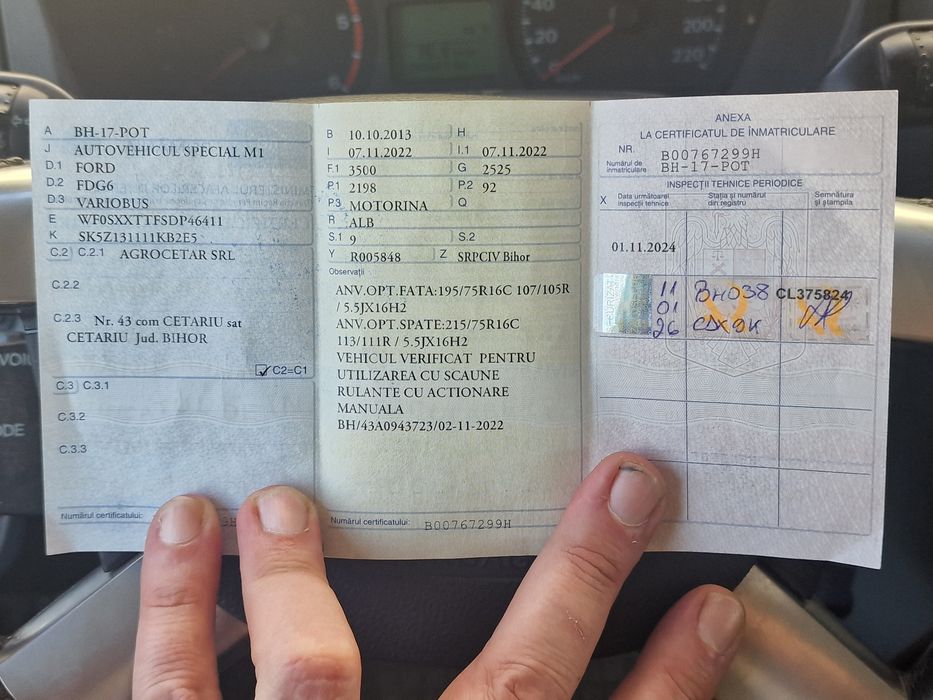 A BH-17-POT
J AUTOVEHICUL SPECIAL M1
D.1 FORD
D.2 FDG6
D.3 VARIOBUS
E WF0SXXTTFSDP46411
K SK5Z131111KB2E5
C.2 C.2.1 AGROCETAR SRL
C.2.2
C.2.3 Nr. 43 com CETARIU sat
CETARIU Jud. BIHOR
C2=C1
C.3 C.3.1
C.3.2
C.3.3
Numărul certificatului:
B 10.10.2013 H
I 07.11.2022 I.1 07.11.2022
F.1 3500 G 2525
P.1 2198 P.2 92
P.3 MOTORINA Q
R ALB
S.1 9 S.2
Y R005848 Z SRPCIV Bihor
Observații
ANV.OPT.FATA:195/75R16C 107/105R
/ 5.5JX16H2
ANV.OPT.SPATE:215/75R16C
113/111R / 5.5JX16H2
VEHICUL VERIFICAT PENTRU
UTILIZAREA CU SCAUNE
RULANTE CU ACTIONARE
MANUALA
BH/43A0943723/02-11-2022
Numărul certificatului: B00767299H
ANEXA
LA CERTIFICATUL DE ÎNMATRICULARE
NR. B00767299H
Numărul de înmatriculare BH-17-POT
INSPECȚII TEHNICE PERIODICE
X Data următoarei inspecții tehnice
Stația și numărul din registru
Semnătura și ștampila
01.11.2024
11 01 26
BH038
CL375824
5
6
40
20
200
220